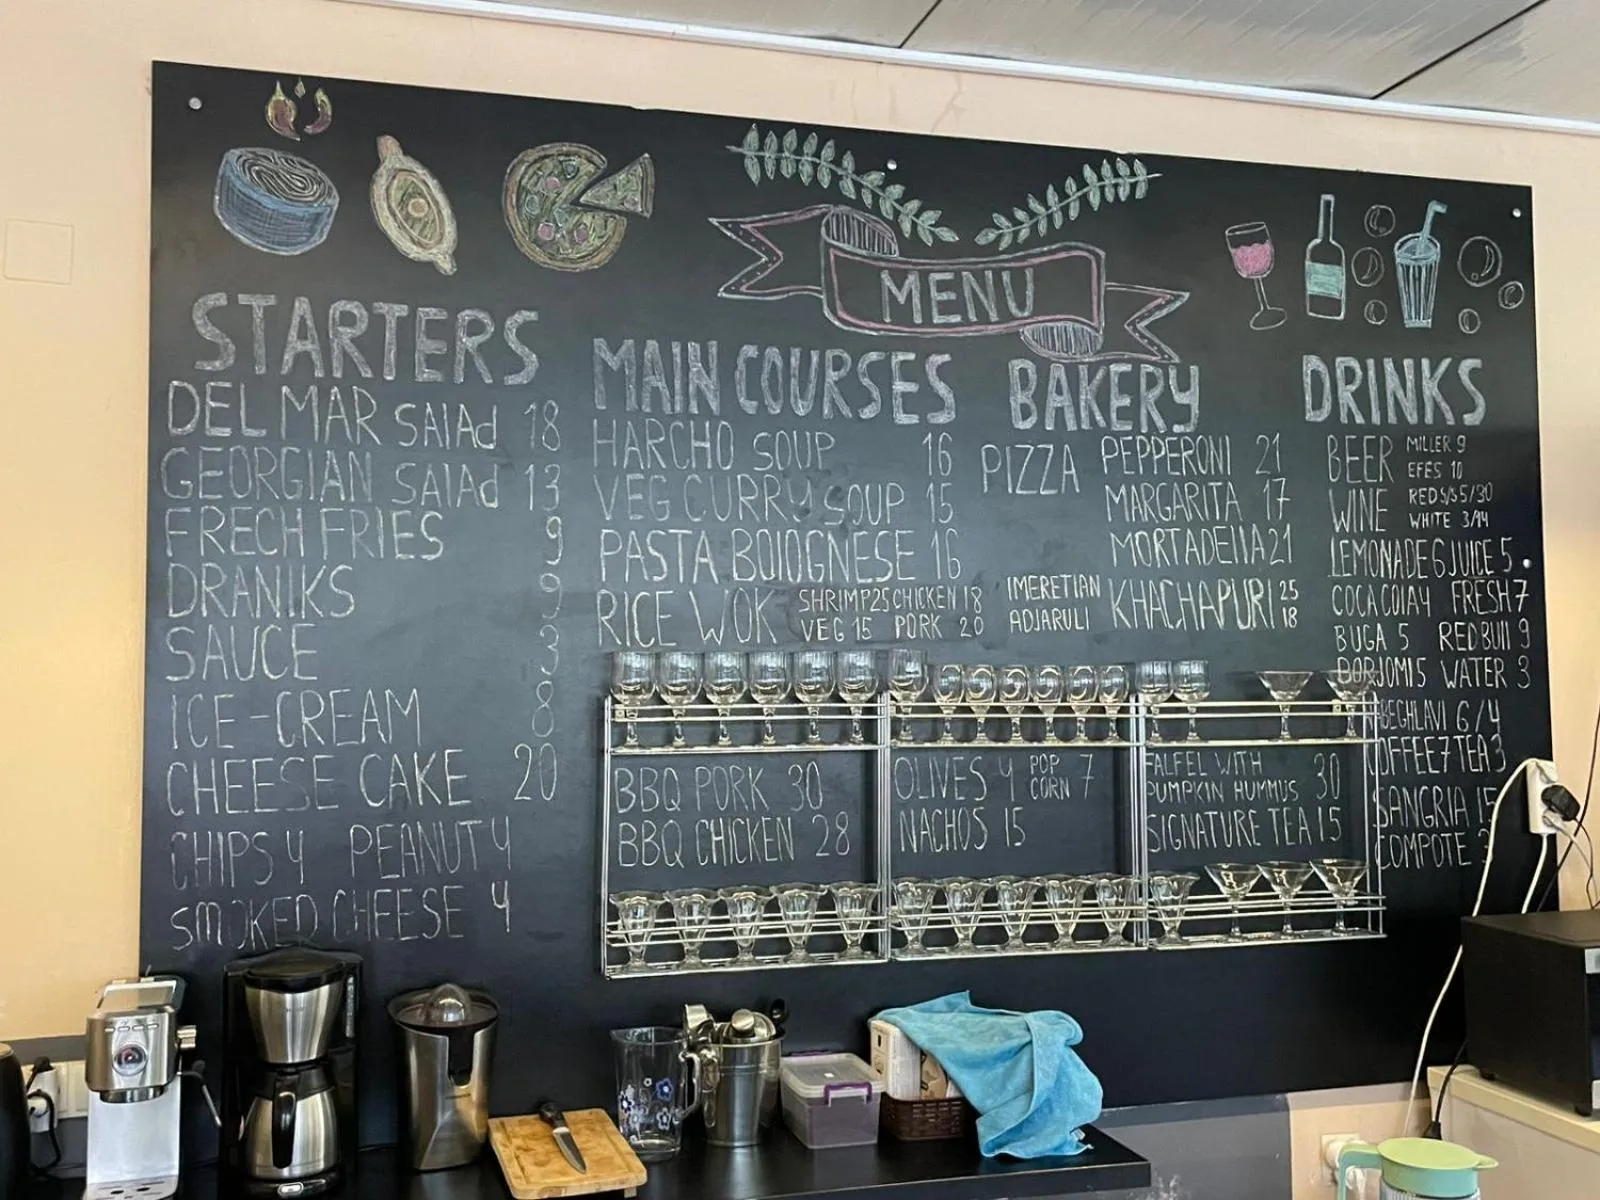 MENU
STARTERS
DEL MAR SALAd 18
GEORGIAN SALAd 13
FRECH FRIES 9
DRANIKS 9
SAUCE 3
ICE-CREAM 8
CHEESE CAKE 20
CHIPS 4 PEANUT 4
SMOKED CHEESE 4
MAIN COURSES
HARCHO SOUP 16
VEG CURRY SOUP 15
PASTA BOLOGNESE 16
RICE WOK SHRIMP 25 CHICKEN 18
VEG 15 PORK 20
BBQ PORK 30
BBQ CHICKEN 28
OLIVES 4 POP CORN 7
NACHOS 15
BAKERY
PIZZA PEPPERONI 21
MARGARITA 17
MORTADELLA 21
IMERETIAN KHACHAPURI 25
ADJARULI 18
FALFEL WITH
PUMPKIN HUMMUS 30
SIGNATURE TEA 15
DRINKS
BEER MILLER 9
EFES 10
WINE RED
WHITE
LEMONADE 6 JUICE 5
COCA COLA 4 FRESH 7
BUGA 5 REDBULL 9
BORJOMI 5 WATER 3
6/4
7 TEA 3
SANGRIA 15
COMPOTE